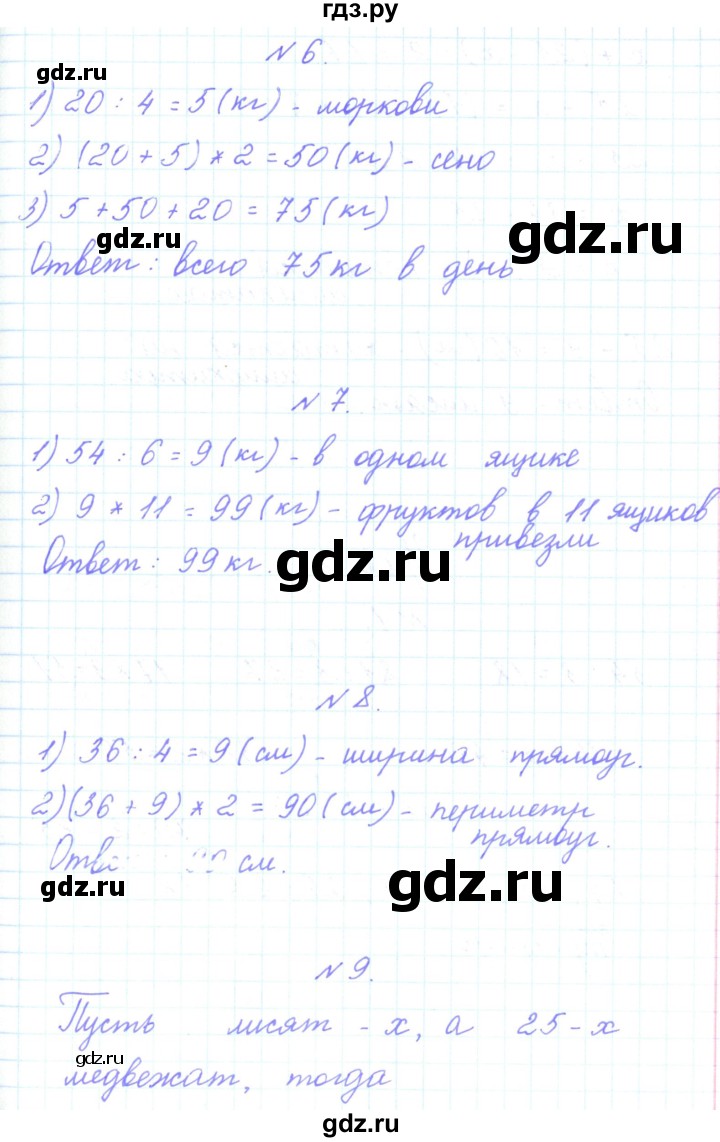 гдз.ру
gdz.ru
№ 6.
1) 20 : 4 = 5 (кг) - моркови
2) (20 + 5) * 2 = 50 (кг) - сено
3) 5 + 50 + 20 = 75 (кг)
gdz.ru
gdz.ru
Ответ: всего 75 кг в день
№ 7.
1) 54 : 6 = 9 (кг) - в одном ящике
2) 9 * 11 = 99 (кг) - фруктов в 11 ящиков
привезли
Ответ: 99 кг.
gdz.ru
№ 8.
1) 36 : 4 = 9 (см) - ширина прямоуг.
2) (36 + 9) * 2 = 90 (см) - периметр
прямоуг.
см.
gdz.ru
gdz.ru
№ 9.
Пусть лисят - х, а 25 - х
gdz.ru
медвежат, тогда
gdz.ru